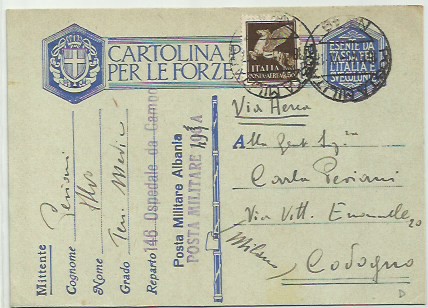 CARTOLINA P
PER LE FORZE
ITALIA
POSTA AEREA
ESENTE DA
TASSA PER
L'ITALIA E
Via Aerea
Alla
Carla Periani
Via Vitt. Emanuele 20
Milano
Codogno
D
Mittente
Cognome Periani
Nome
Grado Ten. Medico
Reparto 146 Ospedale da Campo
Posta Militare Albania
POSTA MILITARE